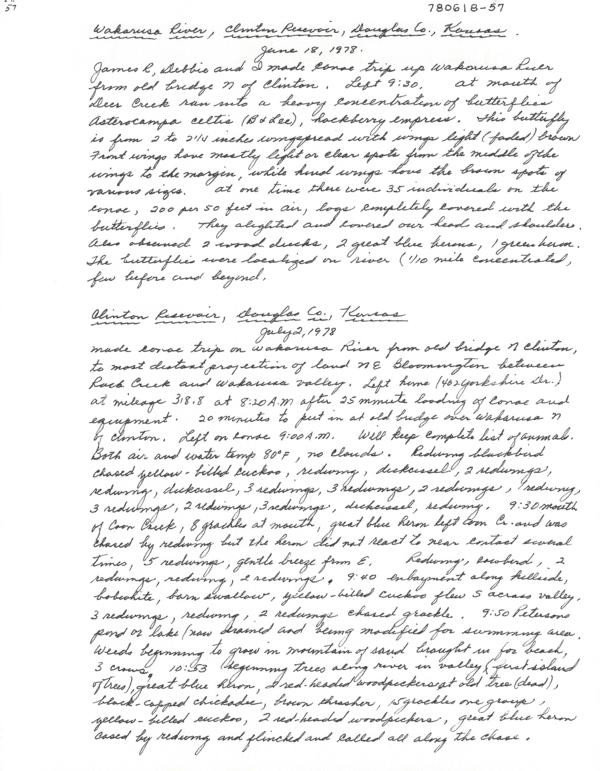 57
780618-57
Wakarusa River, Clinton Resevoir, Douglas Co., Kansas.
June 18, 1978.
James R, Debbie and I made canoe trip up Wakarusa River
from old bridge N of Clinton. Left 9:30, at mouth of
Deer Creek ran into a heavy concentration of butterflies
Asterocampa celtis (B & Lec), hackberry empress. This butterfly
is from 2 to 2 1/4 inches wingspread with wings light (faded) brown
Front wings have mostly light or clear spots from the middle of the
wings to the margin, while hind wings have the brown spots of
various sizes. At one time there were 35 individuals on the
canoe, 200 per 50 feet in air, logs completely covered with the
butterflies. They alighted and covered our heads and shoulders.
Also observed 2 wood ducks, 2 great blue herons, 1 green heron.
The butterflies were localized on river (1/10 mile concentrated,
few before and beyond.
Clinton Resevoir, Douglas Co., Kansas
July 2, 1978
made canoe trip on Wakarusa River from old bridge N Clinton,
to most distant projection of land NE Bloomington between
Rock Creek and Wakarusa valley. Left home (402 Yorkshire Dr.)
at mileage 318.8 at 8:20 A.M after 25 minute loading of canoe and
equipment. 20 minutes to put in at old bridge over Wakarusa N
of Clinton. Left on canoe 9:00 A.M. Will keep complete list of animals.
Both air and water temp 80°F, no clouds. Redwing blackbird
chased yellow-billed cuckoo, redwing, dickcissel, 2 redwings,
redwing, dickcissel, 3 redwings, 3 redwings, 2 redwings, redwing,
3 redwings, 2 redwings, 3 redwings, dickcissel, redwing. 9:30 mouth
of Coon Creek, 8 grackles at mouth, great blue heron left Coon Cr. and was
chased by redwing but the heron did not react to near contact several
times, 5 redwings, gentle breeze from E. Redwing, cowbird, 2
redwings, redwing, 2 redwings. 9:40 enbayment along hillside,
bobwhite, barn swallow, yellow-billed cuckoo flew S across valley,
3 redwings, redwing, 2 redwings chased grackle. 9:50 Petersons
pond or lake (now drained and being modified for swimming area.
Weeds beginning to grow in mountain of sand brought in for beach,
3 crows. 10:53 beginning trees along river in valley (first island
of trees), great blue heron, 2 red-headed woodpeckers at old tree (dead),
black-capped chickadee, brown thrasher, 5 grackles one group,
yellow-billed cuckoo, 2 red-headed woodpeckers, great blue heron
cased by redwing and flinched and called all along the chase.